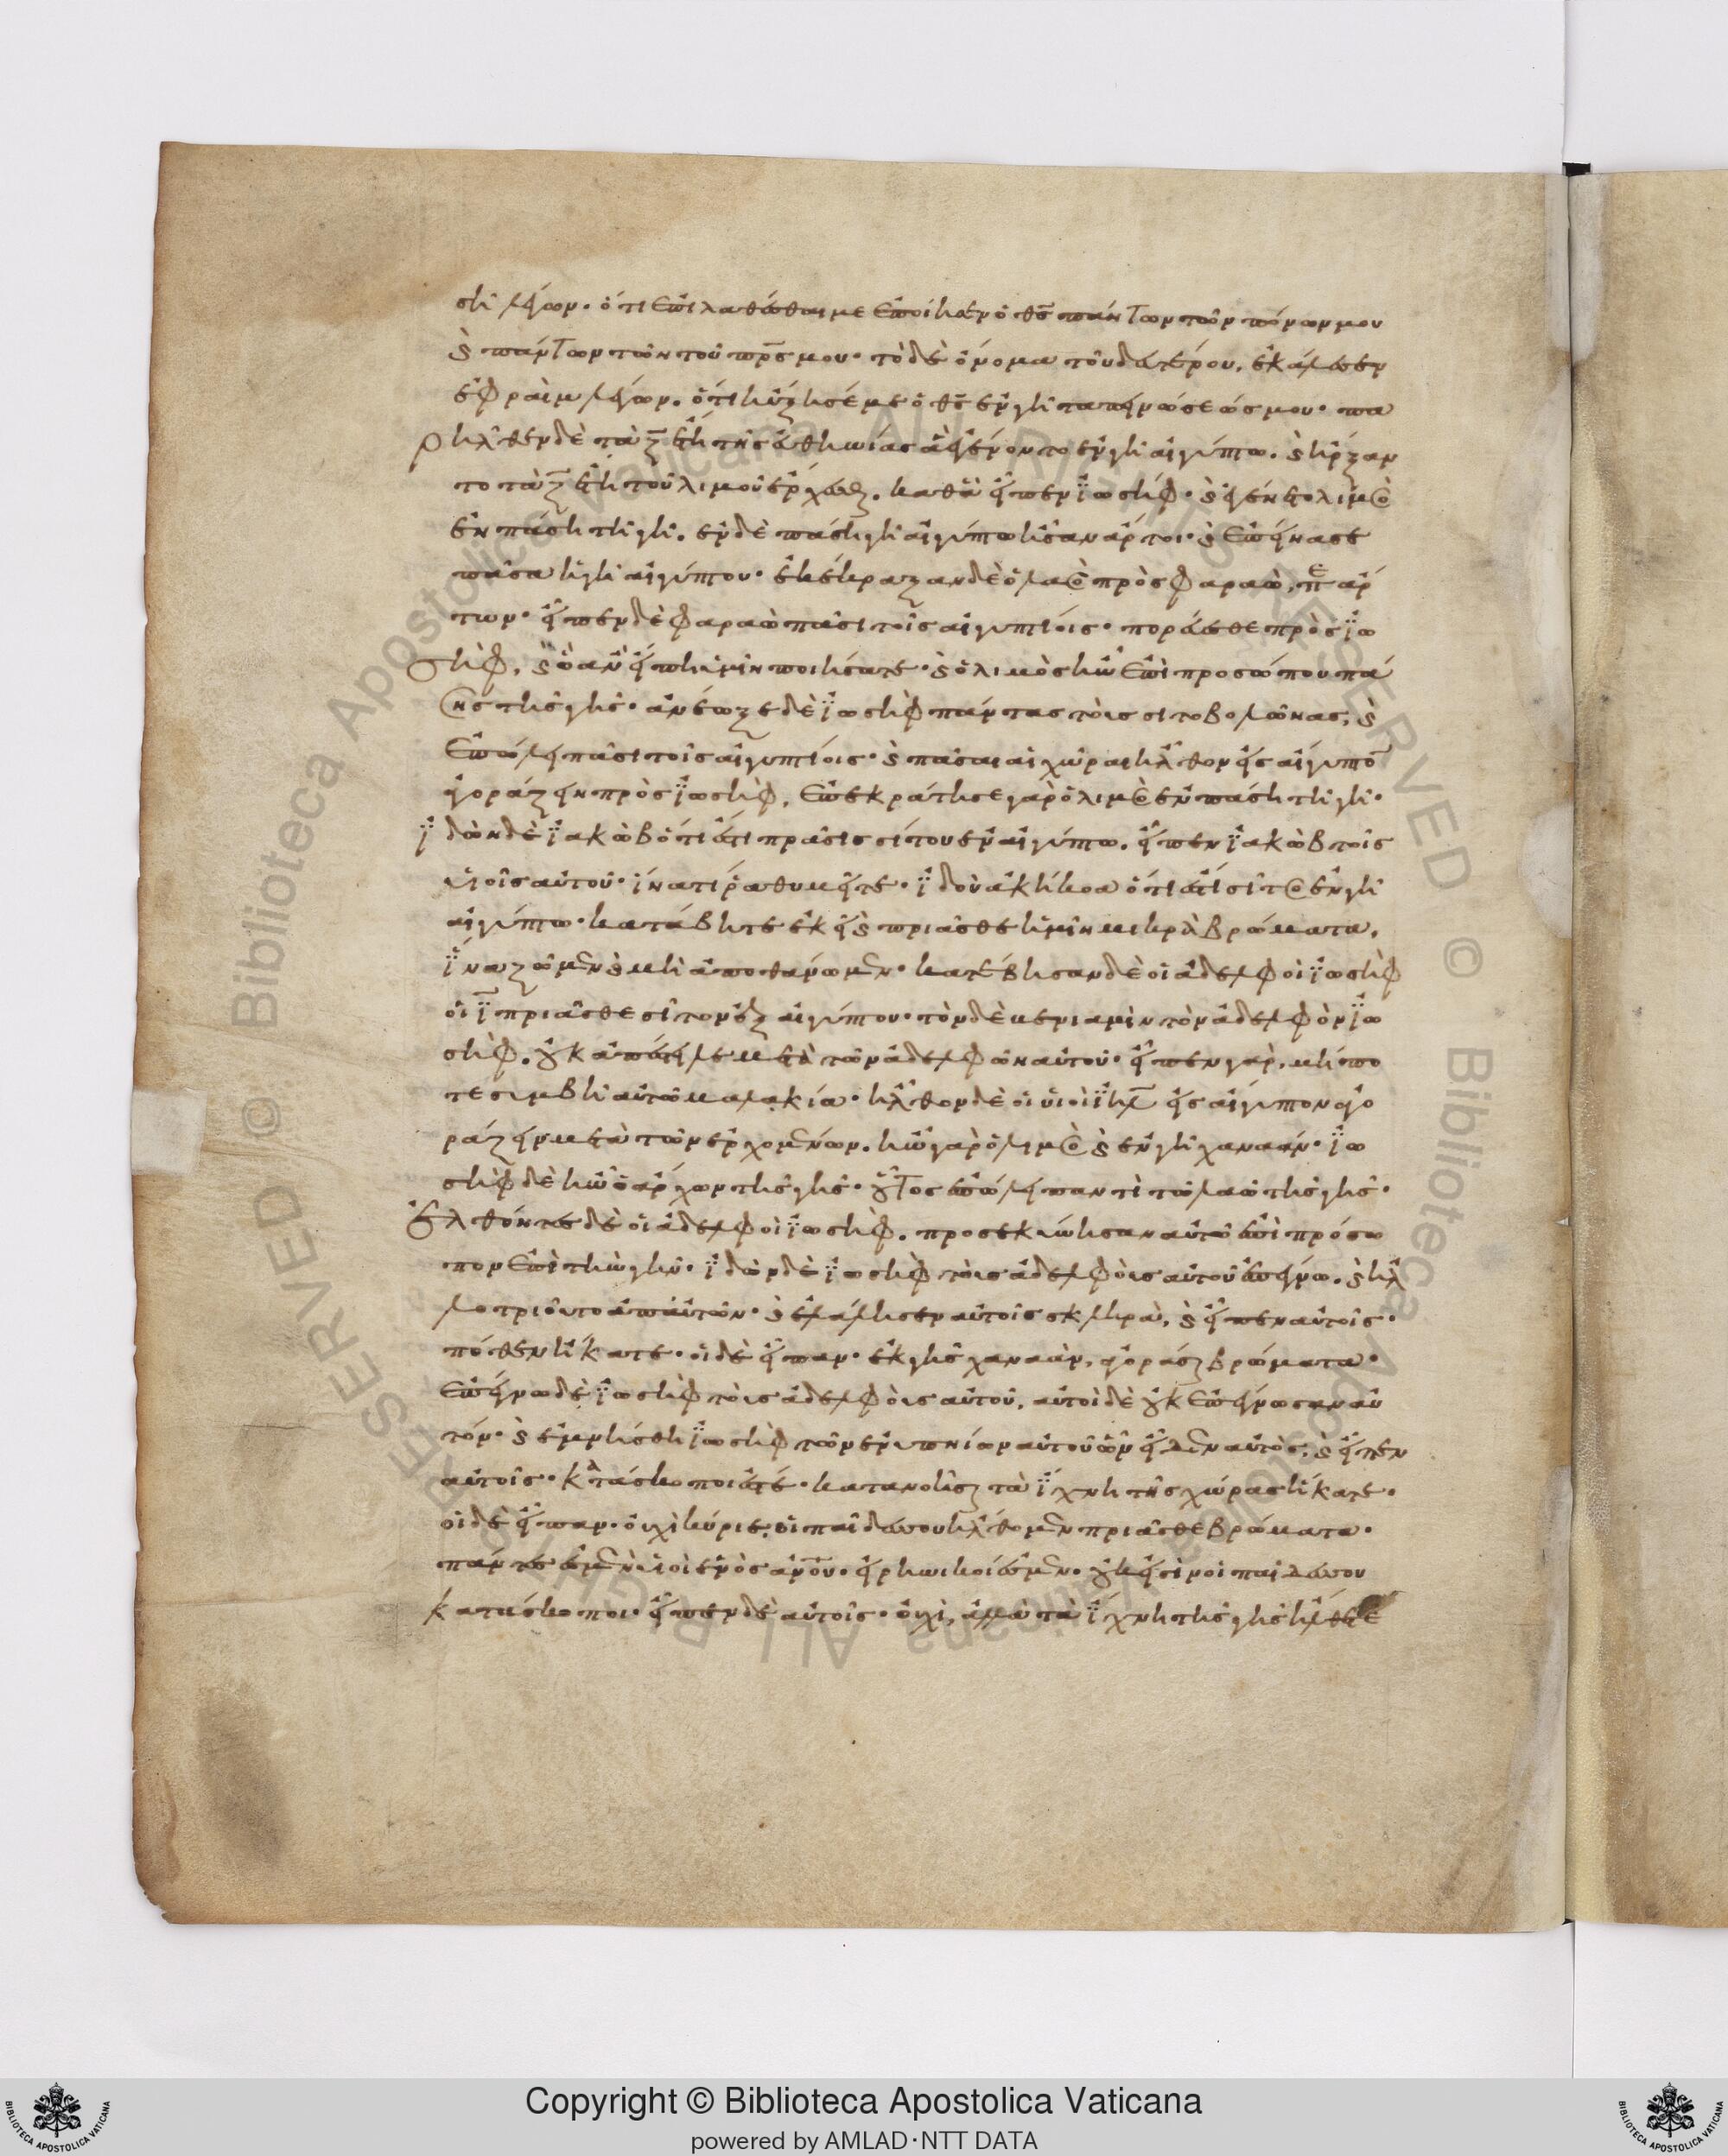 σῆ λέγων· ὅτι ἐπιλαθέσθαι με ἐποίησεν ὁ θς πάντων τῶν πόνων μου
καὶ πάντων τῶν τοῦ πρς μου· τὸ δὲ ὄνομα τοῦ δευτέρου, ἐκάλεσεν
ἐφραὶμ λέγων. ὅτι ηὔξησέ με ὁ θς ἐν γῆ ταπεινώσεώς μου· πα
ρῆλθεν δὲ τὰ ζ ἔτη τῆς εὐθηνίας ἃ ἐγένοντο ἐν γῆ αἰγύπτω. καὶ ἤρξαν
το τὰ ζ ἔτη τοῦ λιμοῦ ἔρχεσθαι. καθὰ εἶπεν ἰωσήφ· καὶ ἐγένετο λιμὸς
ἐν πάση τῆ γῆ. ἐν δὲ πάση γῆ αἰγύπτω ἦσαν ἄρτοι· καὶ ἐπείνασε
πᾶσα ἡ γῆ αἰγύπτου· ἐκέκραξαν δὲ ὁ λαὸς πρὸς φαραὼ, πε ἄρ
των· εἶπεν δὲ φαραὼ πᾶσι τοῖς αἰγυπτίοις· πορεύεσθε πρὸς ἰω
σὴφ, καὶ ὃ ἂν εἴπη ὑμῖν ποιήσατε· καὶ ὁ λιμὸς ἦν ἐπὶ προσώπου πά
σης τῆς γῆς· ἀνέωξε δὲ ἰωσὴφ πάντας τοὺς σιτοβολῶνας, καὶ
ἐπώλει πᾶσι τοῖς αἰγυπτίοις· καὶ πᾶσαι αἱ χῶραι ἦλθον εἰς αἴγυπτον
ἀγοράζειν πρὸς ἰωσὴφ, ἐπεκράτησε γὰρ ὁ λιμὸς ἐν πάση τῆ γῆ·
ἰδὼν δὲ ἰακὼβ ὅτι ἐστὶ πρᾶσις σίτου ἐν αἰγύπτω. εἶπεν ἰακὼβ τοῖς
υἱοῖς αὐτοῦ· ἱνατί ῥαθυμεῖτε· ἰδοὺ ἀκήκοα ὅτι ἐστὶ σῖτος ἐν γῆ
αἰγύπτω· κατάβητε ἐκεῖ καὶ πρίασθε ἡμῖν μικρὰ βρώματα,
ἵνα ζῶμεν καὶ μὴ ἀποθάνωμεν· κατέβησαν δὲ οἱ ἀδελφοὶ ἰωσὴφ
οἱ ι πρίασθε σῖτον ἐξ αἰγύπτου· τὸν δὲ βενιαμὶν τὸν ἀδελφὸν ἰω
σὴφ. οὐκ ἀπέστειλε μετὰ τῶν ἀδελφῶν αὐτοῦ· εἶπεν γὰρ, μήπο
τε συμβῆ αὐτῶ μαλακία· ἦλθον δὲ οἱ υἱοὶ ιηλ εἰς αἴγυπτον ἀγο
ράζειν μετὰ τῶν ἐρχομένων. ἦν γὰρ ὁ λιμὸς καὶ ἐν γῆ χαναάν· ἰω
σὴφ δὲ ἦν ὁ ἄρχων τῆς γῆς· οὗτος ἐπώλει παντὶ τῶ λαῶ τῆς γῆς·
ἐλθόντες δὲ οἱ ἀδελφοὶ ἰωσὴφ. προσεκύνησαν αὐτῶ ἐπὶ πρόσω
πον ἐπὶ τὴν γῆν· ἰδὼν δὲ ἰωσὴφ τοὺς ἀδελφοὺς αὐτοῦ ἐπέγνω. καὶ ἠλ
λοτριοῦτο ἀπ' αὐτῶν· καὶ ἐλάλησεν αὐτοῖς σκληρὰ, καὶ εἶπεν αὐτοῖς·
πόθεν ἥκατε· οἱ δὲ εἶπαν· ἐκ γῆς χαναὰν, ἀγοράσαι βρώματα·
ἐπέγνω δὲ ἰωσὴφ τοὺς ἀδελφοὺς αὐτοῦ, αὐτοὶ δὲ οὐκ ἐπέγνωσαν αὐ
τόν· καὶ ἐμνήσθη ἰωσὴφ τῶν ἐνυπνίων αὐτοῦ ὧν εἶδεν αὐτὸς, καὶ εἶπεν
αὐτοῖς· κατάσκοποι ἐστέ· κατανοῆσαι τὰ ἴχνη τῆς χώρας ἥκατε·
οἱ δὲ εἶπαν· οὐχὶ κύριε, οἱ παῖδές σου ἤλθομεν πρίασθε βρώματα·
πάντες ἐσμὲν υἱοὶ ἑνὸς ἀνου· εἰρηνικοί ἐσμεν. οὐκ εἰσὶν οἱ παῖδές σου
κατάσκοποι· εἶπεν δὲ αὐτοῖς· οὐχὶ, ἀλλὰ τὰ ἴχνη τῆς γῆς ἤλθετε